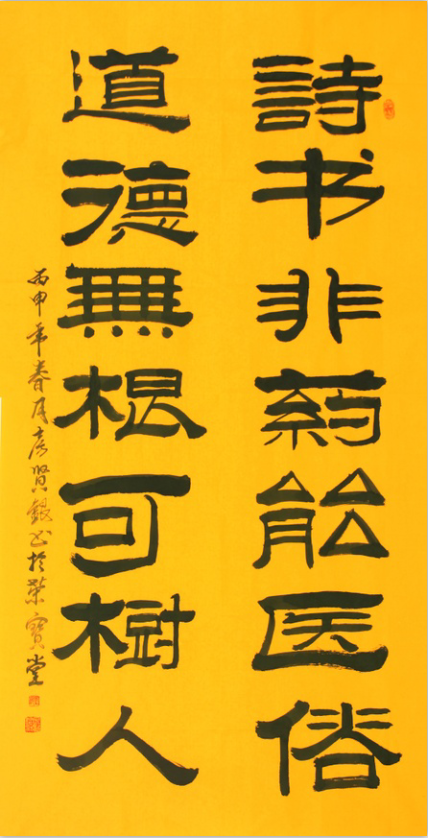 詩书非药能医俗
道德無根可樹人
丙申年春月彦贤錕书於荣寳堂